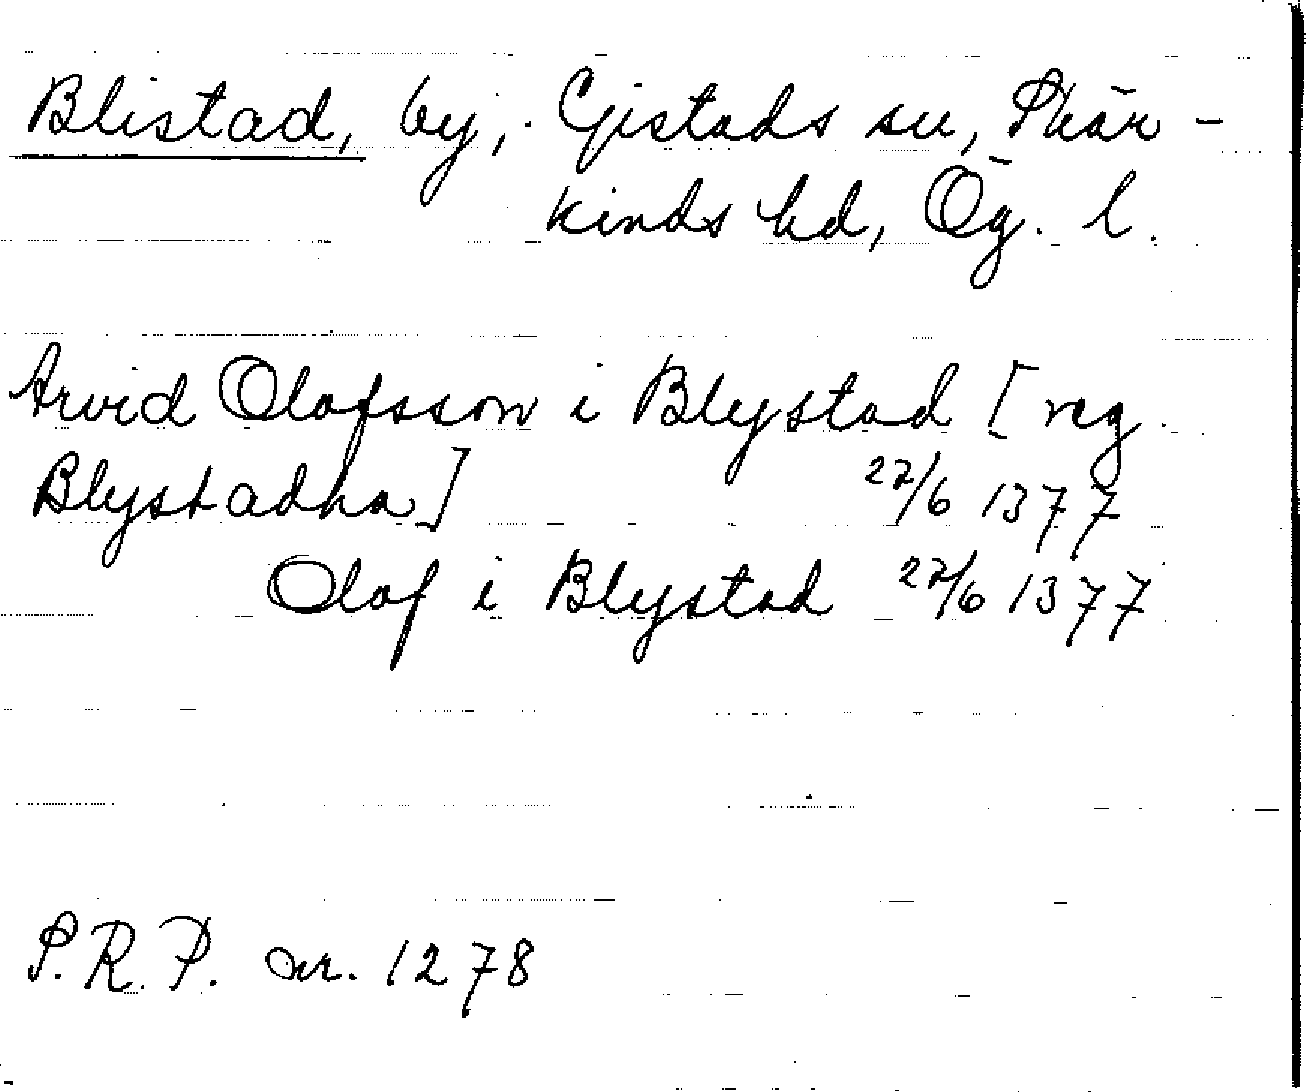 Blistad, by, Gistads sn, Skär-
kinds hd, Ög. l.
Arvid Olofsson i Blystad [reg
Blystadha] 27/6 1377
Olof i Blystad 27/6 1377
S.R.P. nr. 1278